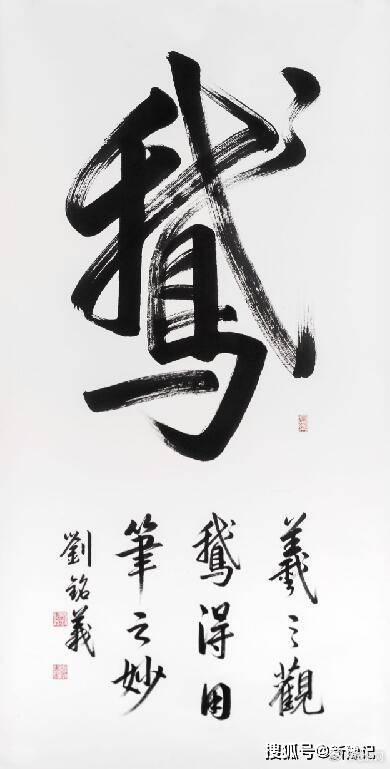 鵞
羲之觀
鵞得用
筆之妙
劉銘義
搜狐号@新豫记